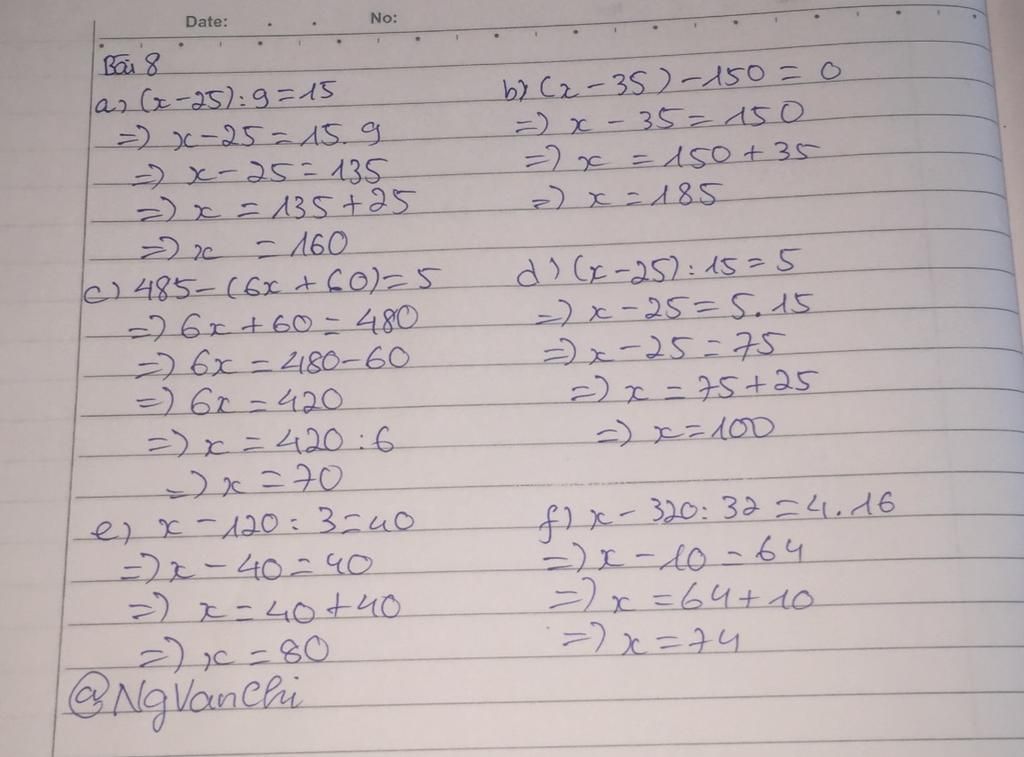 Date: No:
Bài 8
a) (x-25):9=15
=) x-25=15.9
=) x-25=135
=) x=135+25
=) x =160
b) (x-35)-150=0
=) x-35=150
=) x=150+35
=) x=185
c) 485-(6x+60)=5
=) 6x+60=480
=) 6x=480-60
=) 6x=420
=) x=420:6
=) x=70
d) (x-25):15=5
=) x-25=5.15
=) x-25=75
=) x=75+25
=) x=100
e) x-120:3=40
=) x-40=40
=) x=40+40
=) x=80
f) x-320:32=4.16
=) x-10=64
=) x=64+10
=) x=74
@NgVanChi